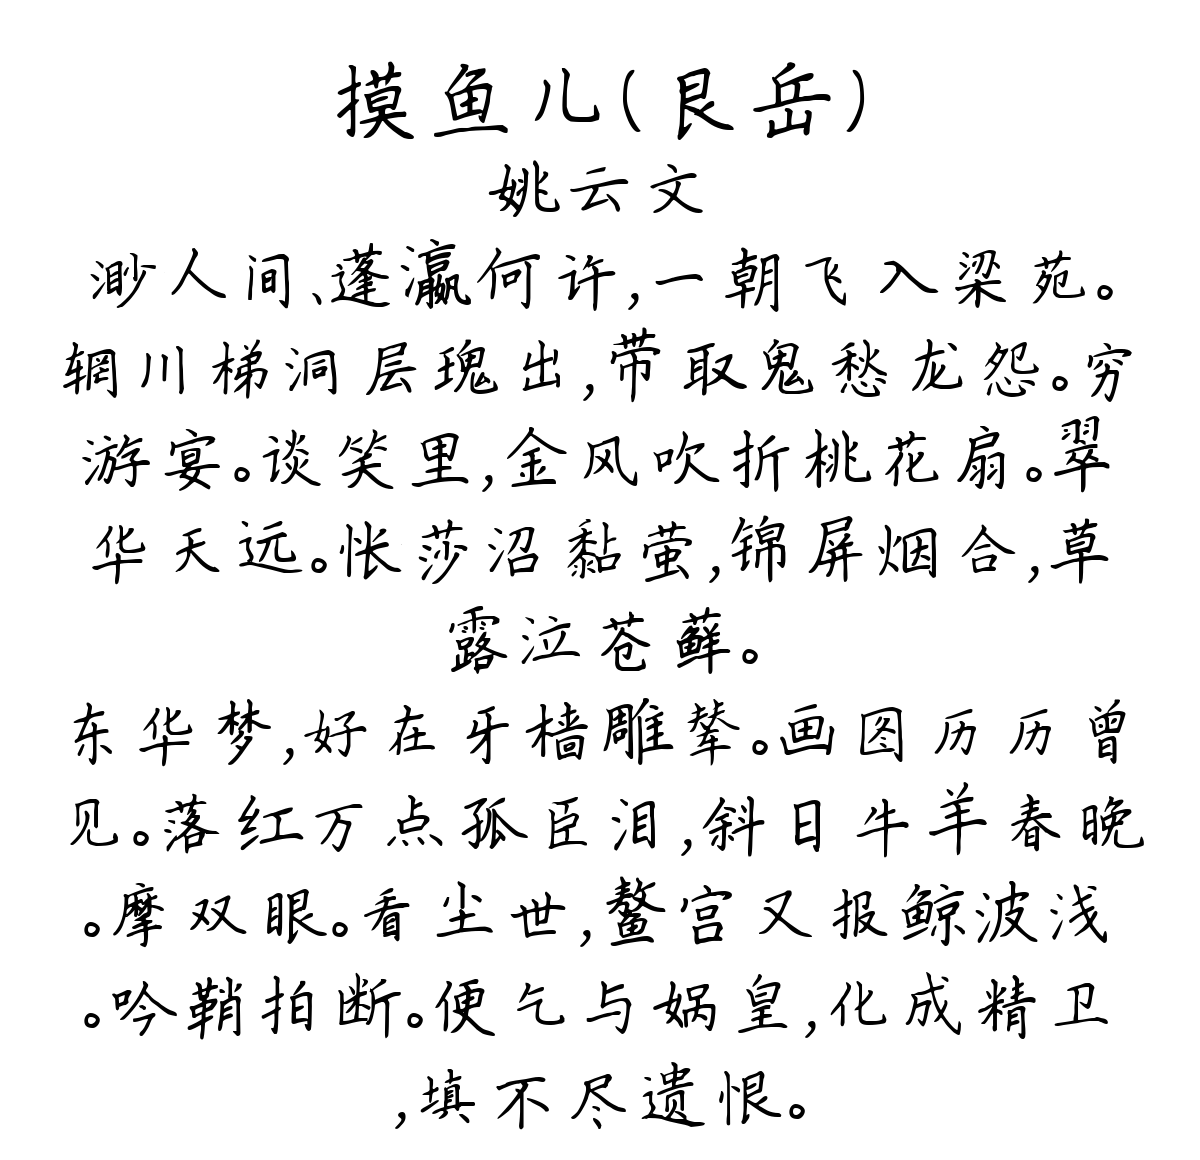 摸鱼儿(艮岳)
姚云文
渺人间、蓬瀛何许,一朝飞入梁苑。
辋川梯洞层瑰出,带取鬼愁龙怨。穷
游宴。谈笑里,金风吹折桃花扇。翠
华天远。怅莎沼黏萤,锦屏烟合,草
露泣苍藓。
东华梦,好在牙樯雕辇。画图历历曾
见。落红万点孤臣泪,斜日牛羊春晚
。摩双眼。看尘世,鳌宫又报鲸波浅
。吟鞘拍断。便乞与娲皇,化成精卫
,填不尽遗恨。